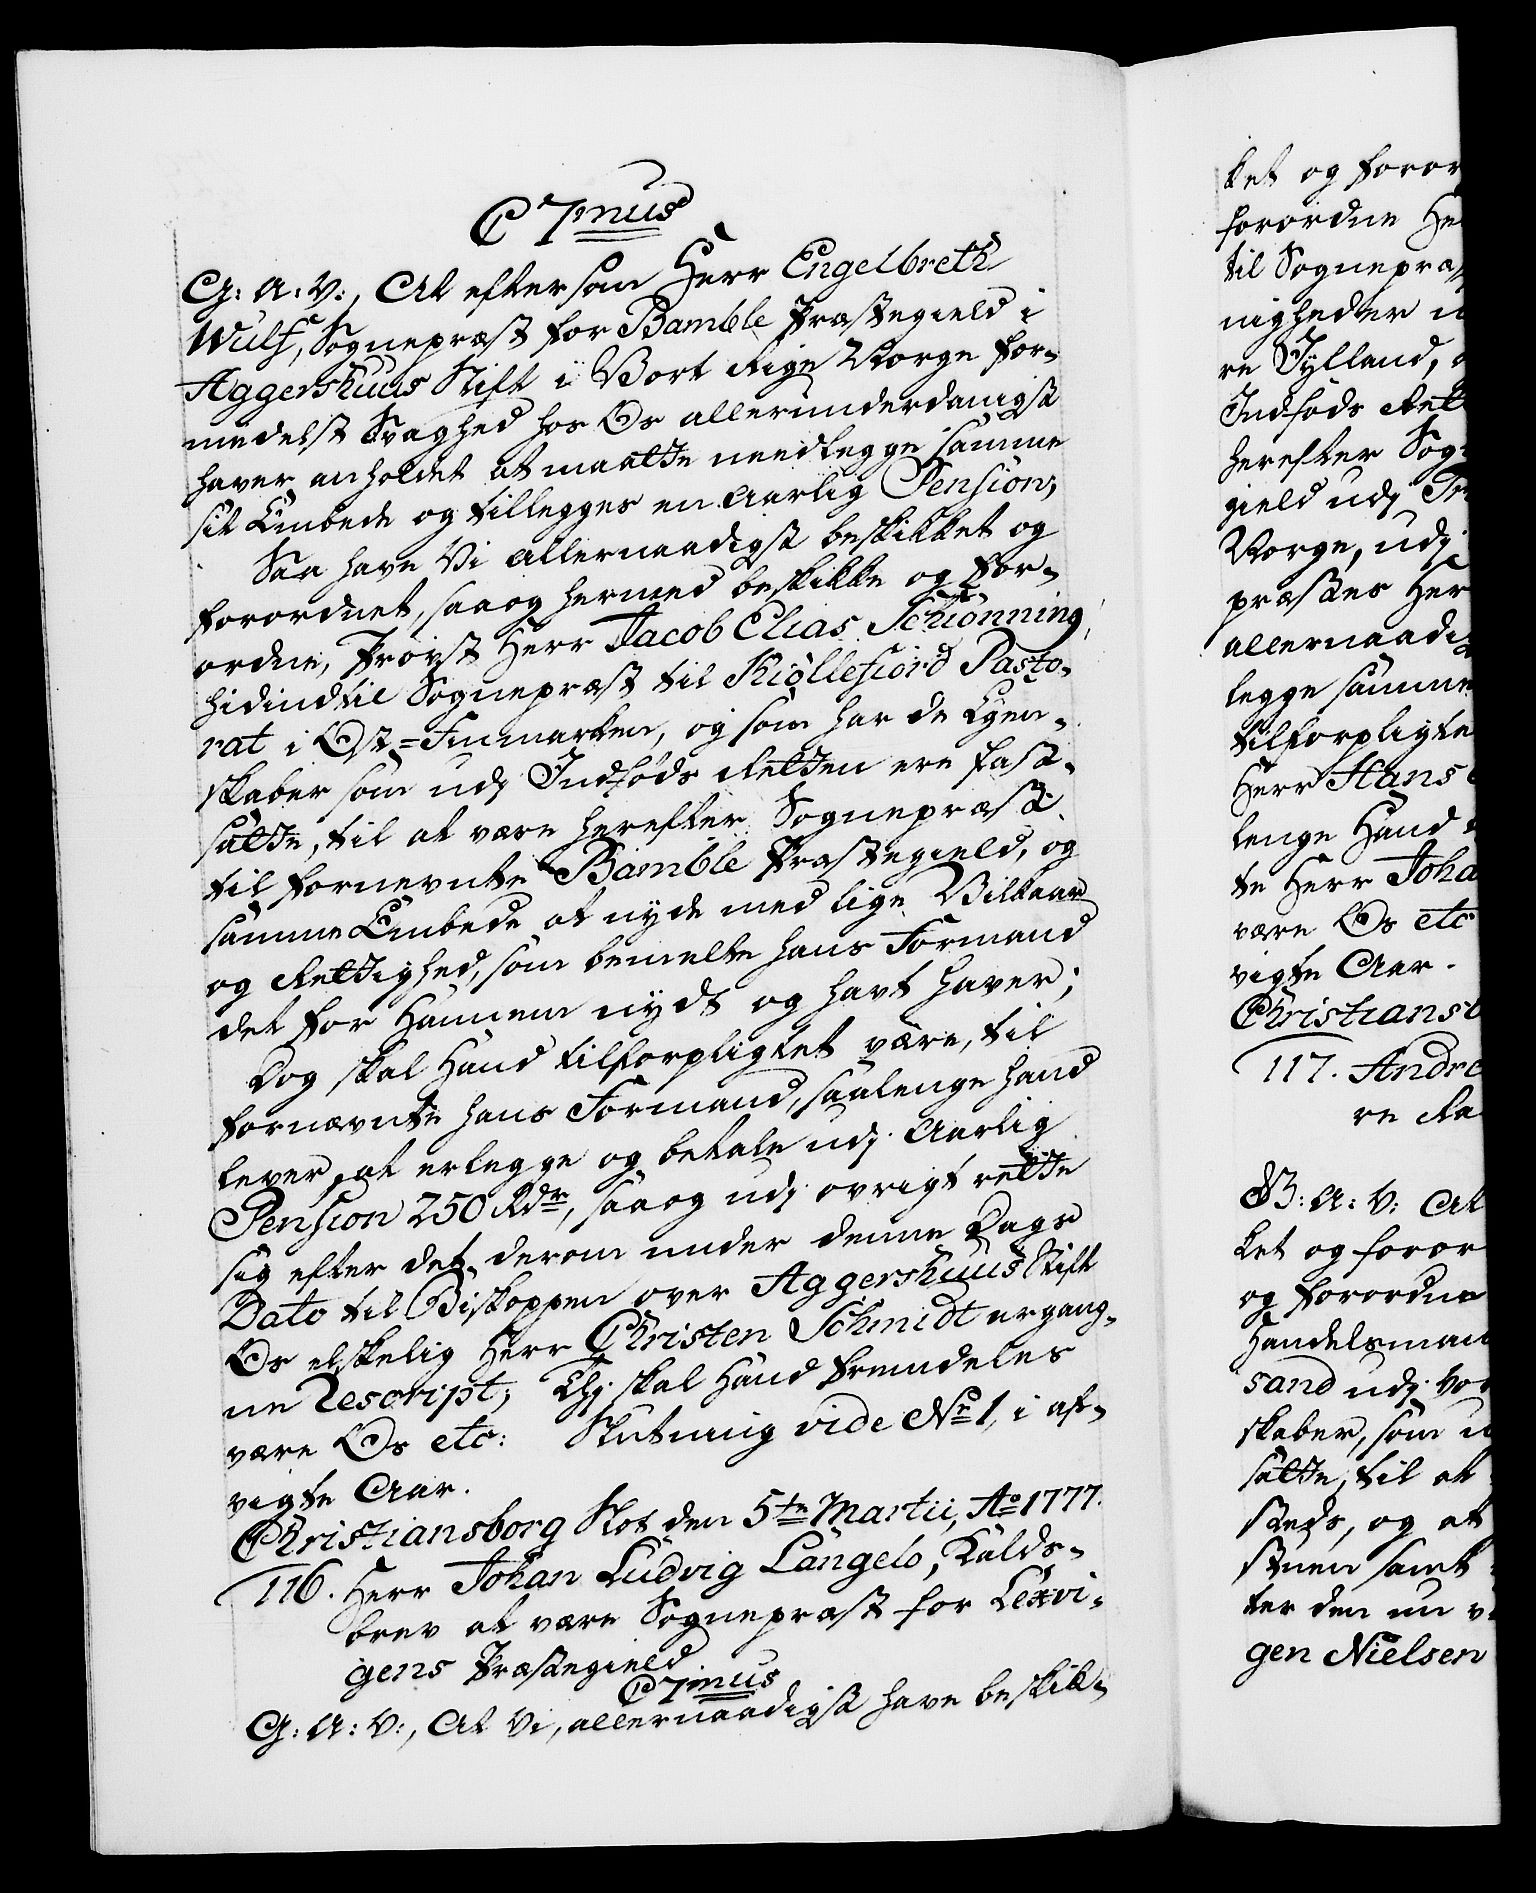 C 7mus
G: A: V:, At eftersom Herr Engelbreth
Wulf, Sognepræst for Bamble Præstegield i
Aggershuus Stift i Vort Rige Norge for-
medelst Svaghed hos Os allerunderdanigst
haver anholdet at maatte needlegge samme
sit Embede og tillegges en Aarlig Pension,
Saa have Vi allernaadigst beskikket og
forordnet, saaog hermed beskikke og for-
ordne, Provst Herr Jacob Elias Schiønning,
hidindtil Sognepræst til Kiøllefiord Pasto-
rat i Øst-Finmarken, og som har de Egen-
skaber som udj Indføds Retten ere fast-
satte, til at være herefter Sognepræst
til fornevnte Bamble Præstegield, og
samme Embede at nyde med lige Vilkaar
og Rettighed, som bemelte hans Formand
det for Hannem nydt og havt haver;
Dog skal Hand tilforpligtet være, til
fornævnte hans Formand, saalenge hand
lever, at erlegge og betale udj Aarlig
Pension 250 Rdr, saaog udj øvrigt rette
sig efter det derom under denne Dags
Dato til Biskoppen over Aggershuus Stift
Os elskelig Herr Christen Schmidt ergang-
ne Rescript; Thj skal Hand fremdeles
være Os etc: Slutning vide No 1, i af-
vigte Aar.
Christiansborg Slot den 5te Martii, Ao 1777.
116. Herr Johan Ludvig Langelo, Kalds-
brev at være Sognepræst for Lexvi-
gens Præstegield
C 7mus
G: A: V:, At Vi, allernaadigst have beskik-
ket og foror
forordne He
til Sognepræ
nigheder u
re Jylland,
Indføds Rett
herefter Sog
gield udj Tr
Norge, udj
præstes Her
allernaadi
legge samme
tilforpligte
Herr Hans
lenge Hand
te Herr Joha
være Os etc
vigte Aar.
Christiansb
117. Andre
re Ra
G: A: V: At
ket og foror
og forordne
Handelsmand
sand udj Vor
skaber, som u
satte, til at
steds, og at
stuen samt
ter den nu v
gen Nielsen